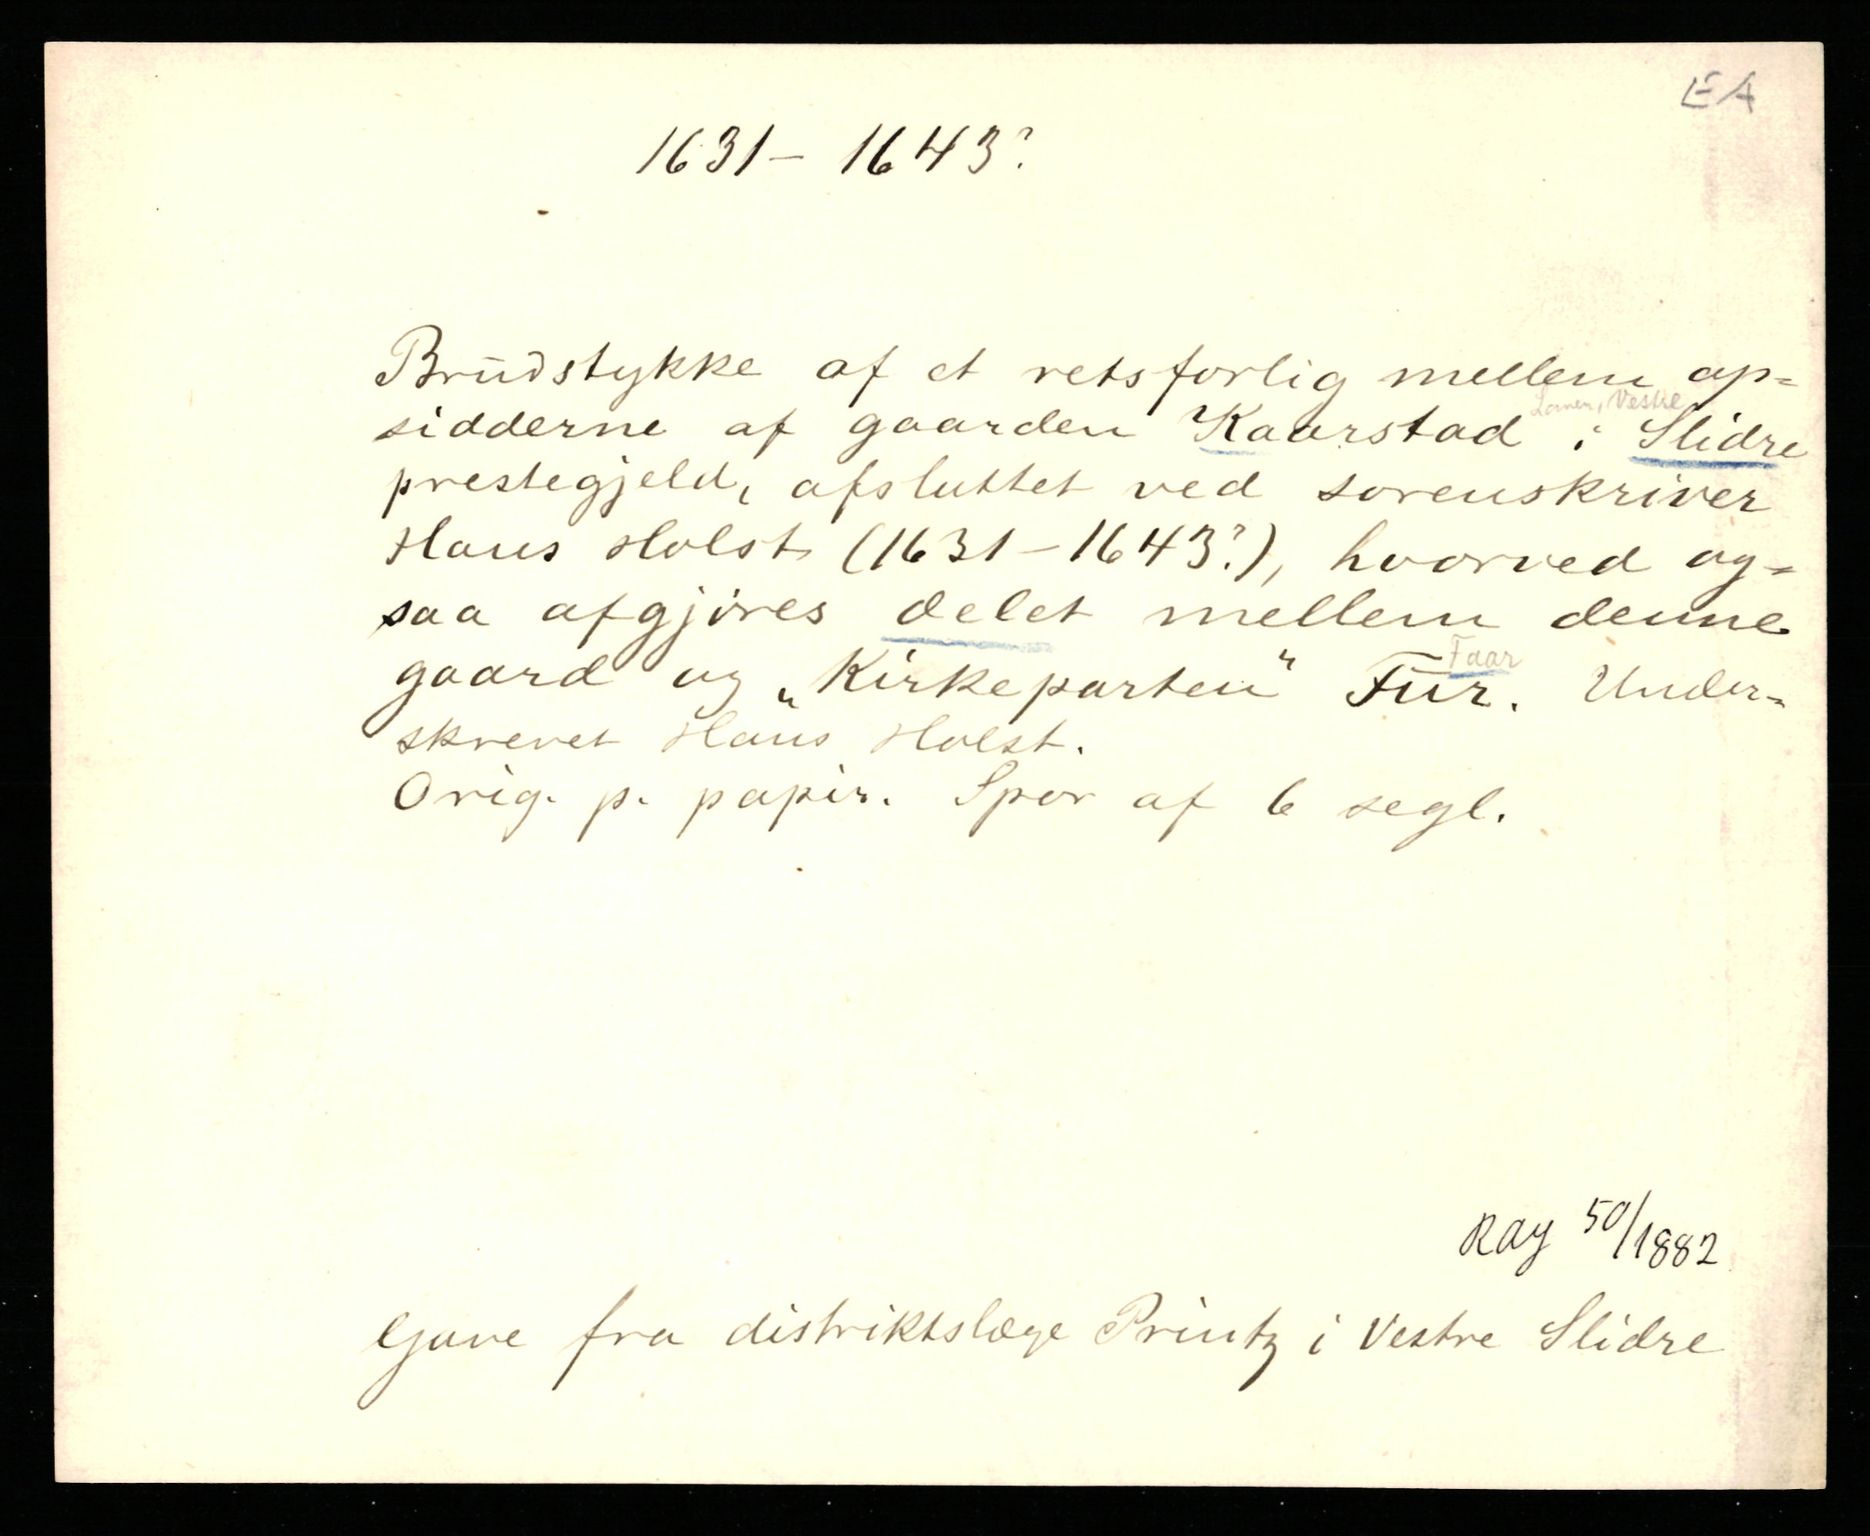 EA
1631 – 1643?
Brudstykke af et retsforlig mellem op=
Lomen, Vestre
sidderne af gaarden Kaarstad i Slidre
prestegjeld, afsluttet ved sorenskriver
Hans Holst (1631–1643?), hvorved og=
saa afgjøres delet mellem denne
Faar
gaard og „Kirkeparten" Fur. Under=
skrevet Hans Holst.
Orig. p. papir. Spor af 6 segl.
50/1882
Gave fra distriktslæge Printz i Vestre Slidre